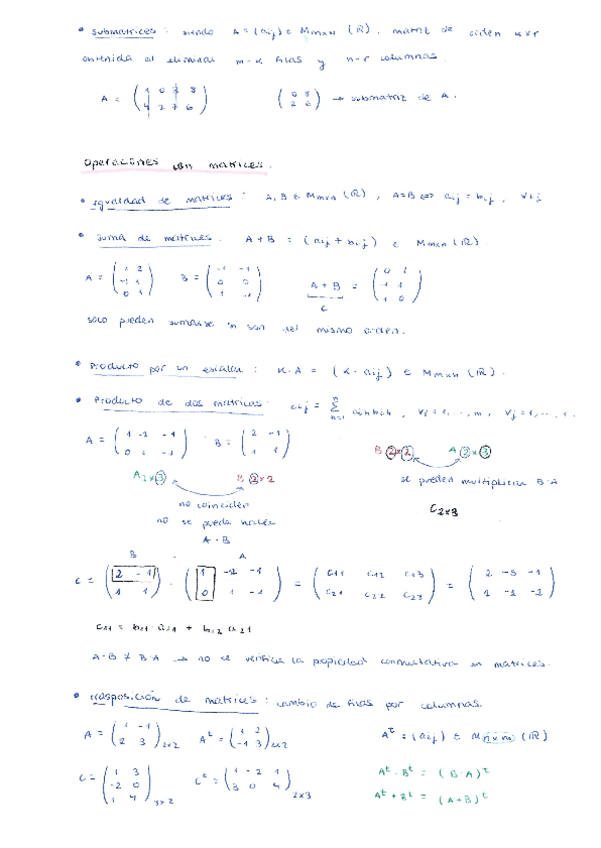 • submatrices : siendo A = (aij) ∈ Mmxn (ℝ), matriz de orden kxr
obtenida al eliminar m-k filas y n-r columnas.
A = ( 1 0 7 8 / 4 2 7 6 ) ( 0 8 / 2 6 ) → submatriz de A.
operaciones con matrices.
• igualdad de matrices : A, B ∈ Mmxn (ℝ), A=B ⇔ aij = bij, ∀i,j
• suma de matrices. A + B = (aij + bij) ∈ Mmxn (ℝ)
A = ( 1 2 / -1 1 / 0 1 ) B = ( -1 -1 / 0 0 / 1 -1 ) A + B = ( 0 1 / -1 1 / 1 0 )
C
solo pueden sumarse si son del mismo orden.
• Producto por un escalar : K·A = (K·aij) ∈ Mmxn (ℝ).
• Producto de dos matrices. cij = Σ aih bhj, ∀i=1,...,m, ∀j=1,...,r.
A = ( 1 -2 -1 / 0 1 -1 ) B = ( 2 -1 / 1 1 )
B 2x2 A 2x3
A 2x3 B 2x2
se pueden multiplicar B·A
no coinciden
C 2x3
no se puede hacer
A·B
B A
C = ( 2 -1 / 1 1 ) · ( 1 -2 -1 / 0 1 -1 ) = ( c11 c12 c13 / c21 c22 c23 ) = ( 2 -5 -1 / 1 -1 -2 )
c11 = b11·a11 + b12 a21
A·B ≠ B·A → no se verifica la propiedad conmutativa en matrices.
• trasposición de matrices : cambio de filas por columnas.
A = ( 1 -1 / 2 3 ) 2x2 Aᵗ = ( 1 2 / -1 3 ) 2x2 Aᵗ = (aij) ∈ Mnxm (ℝ)
C = ( 1 3 / -2 0 / 1 4 ) 3x2 Cᵗ = ( 1 -2 1 / 3 0 4 ) 2x3
Aᵗ·Bᵗ = (B·A)ᵗ
Aᵗ + Bᵗ = (A+B)ᵗ